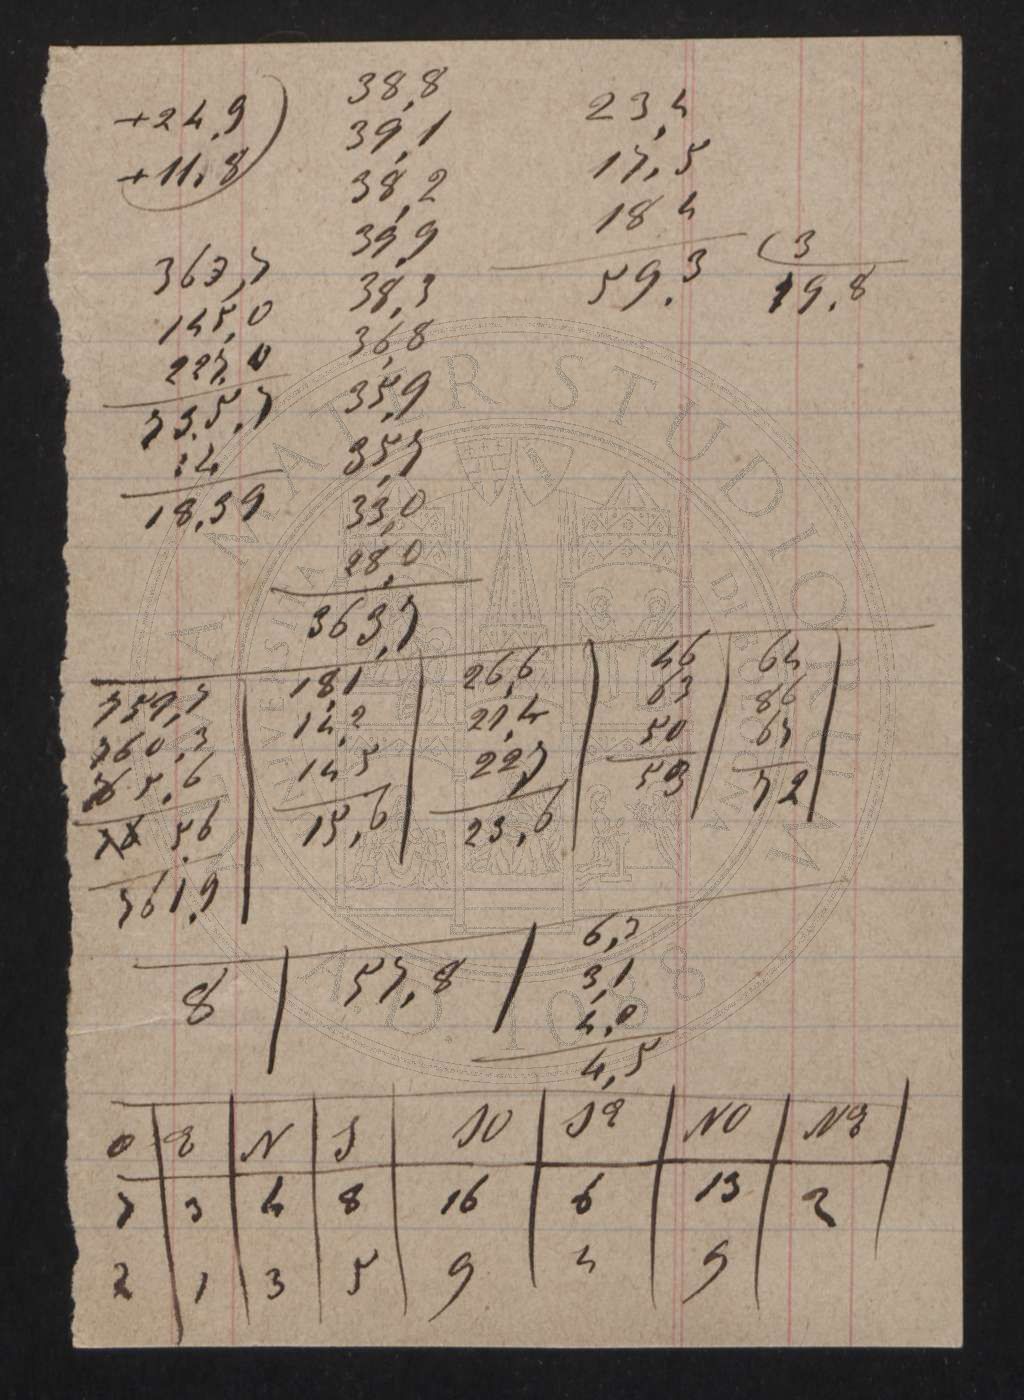 +24,9
+11,8
363,7
145,0
227,0
73.5,7
:4
18,39
38,8
39,1
38,2
39,9
38,3
36,8
35,9
35,7
33,0
28,0
363,7
23,4
17,5
18 4
59.3
3
19.8
759,7 | 18,1 | 26,6 | 46 | 64
760,3 | 14,2 | 21,4 | 63 | 86
765,6 | 14 5 | 22,7 | 50 | 67
5,6 | 15,6 | 23,6 | 53 | 72
761,9
8 | 57,8 | 6,3
3,1
4,0
4,5
O | E | N | S | SO | SE | NO | NE
7 | 3 | 4 | 8 | 16 | 6 | 13 | 2
2 | 1 | 3 | 5 | 9 | 4 | 9
ALMA MATER STUDIORUM
A.D. 1088